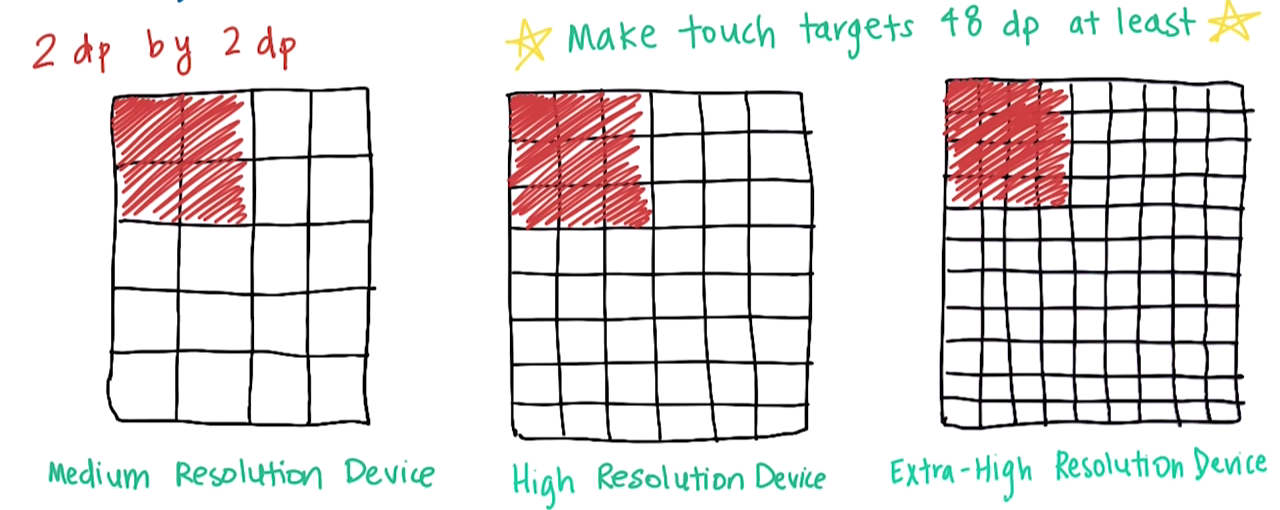 2 dp by 2 dp
Make touch targets 48 dp at least
Medium Resolution Device
High Resolution Device
Extra-High Resolution Device